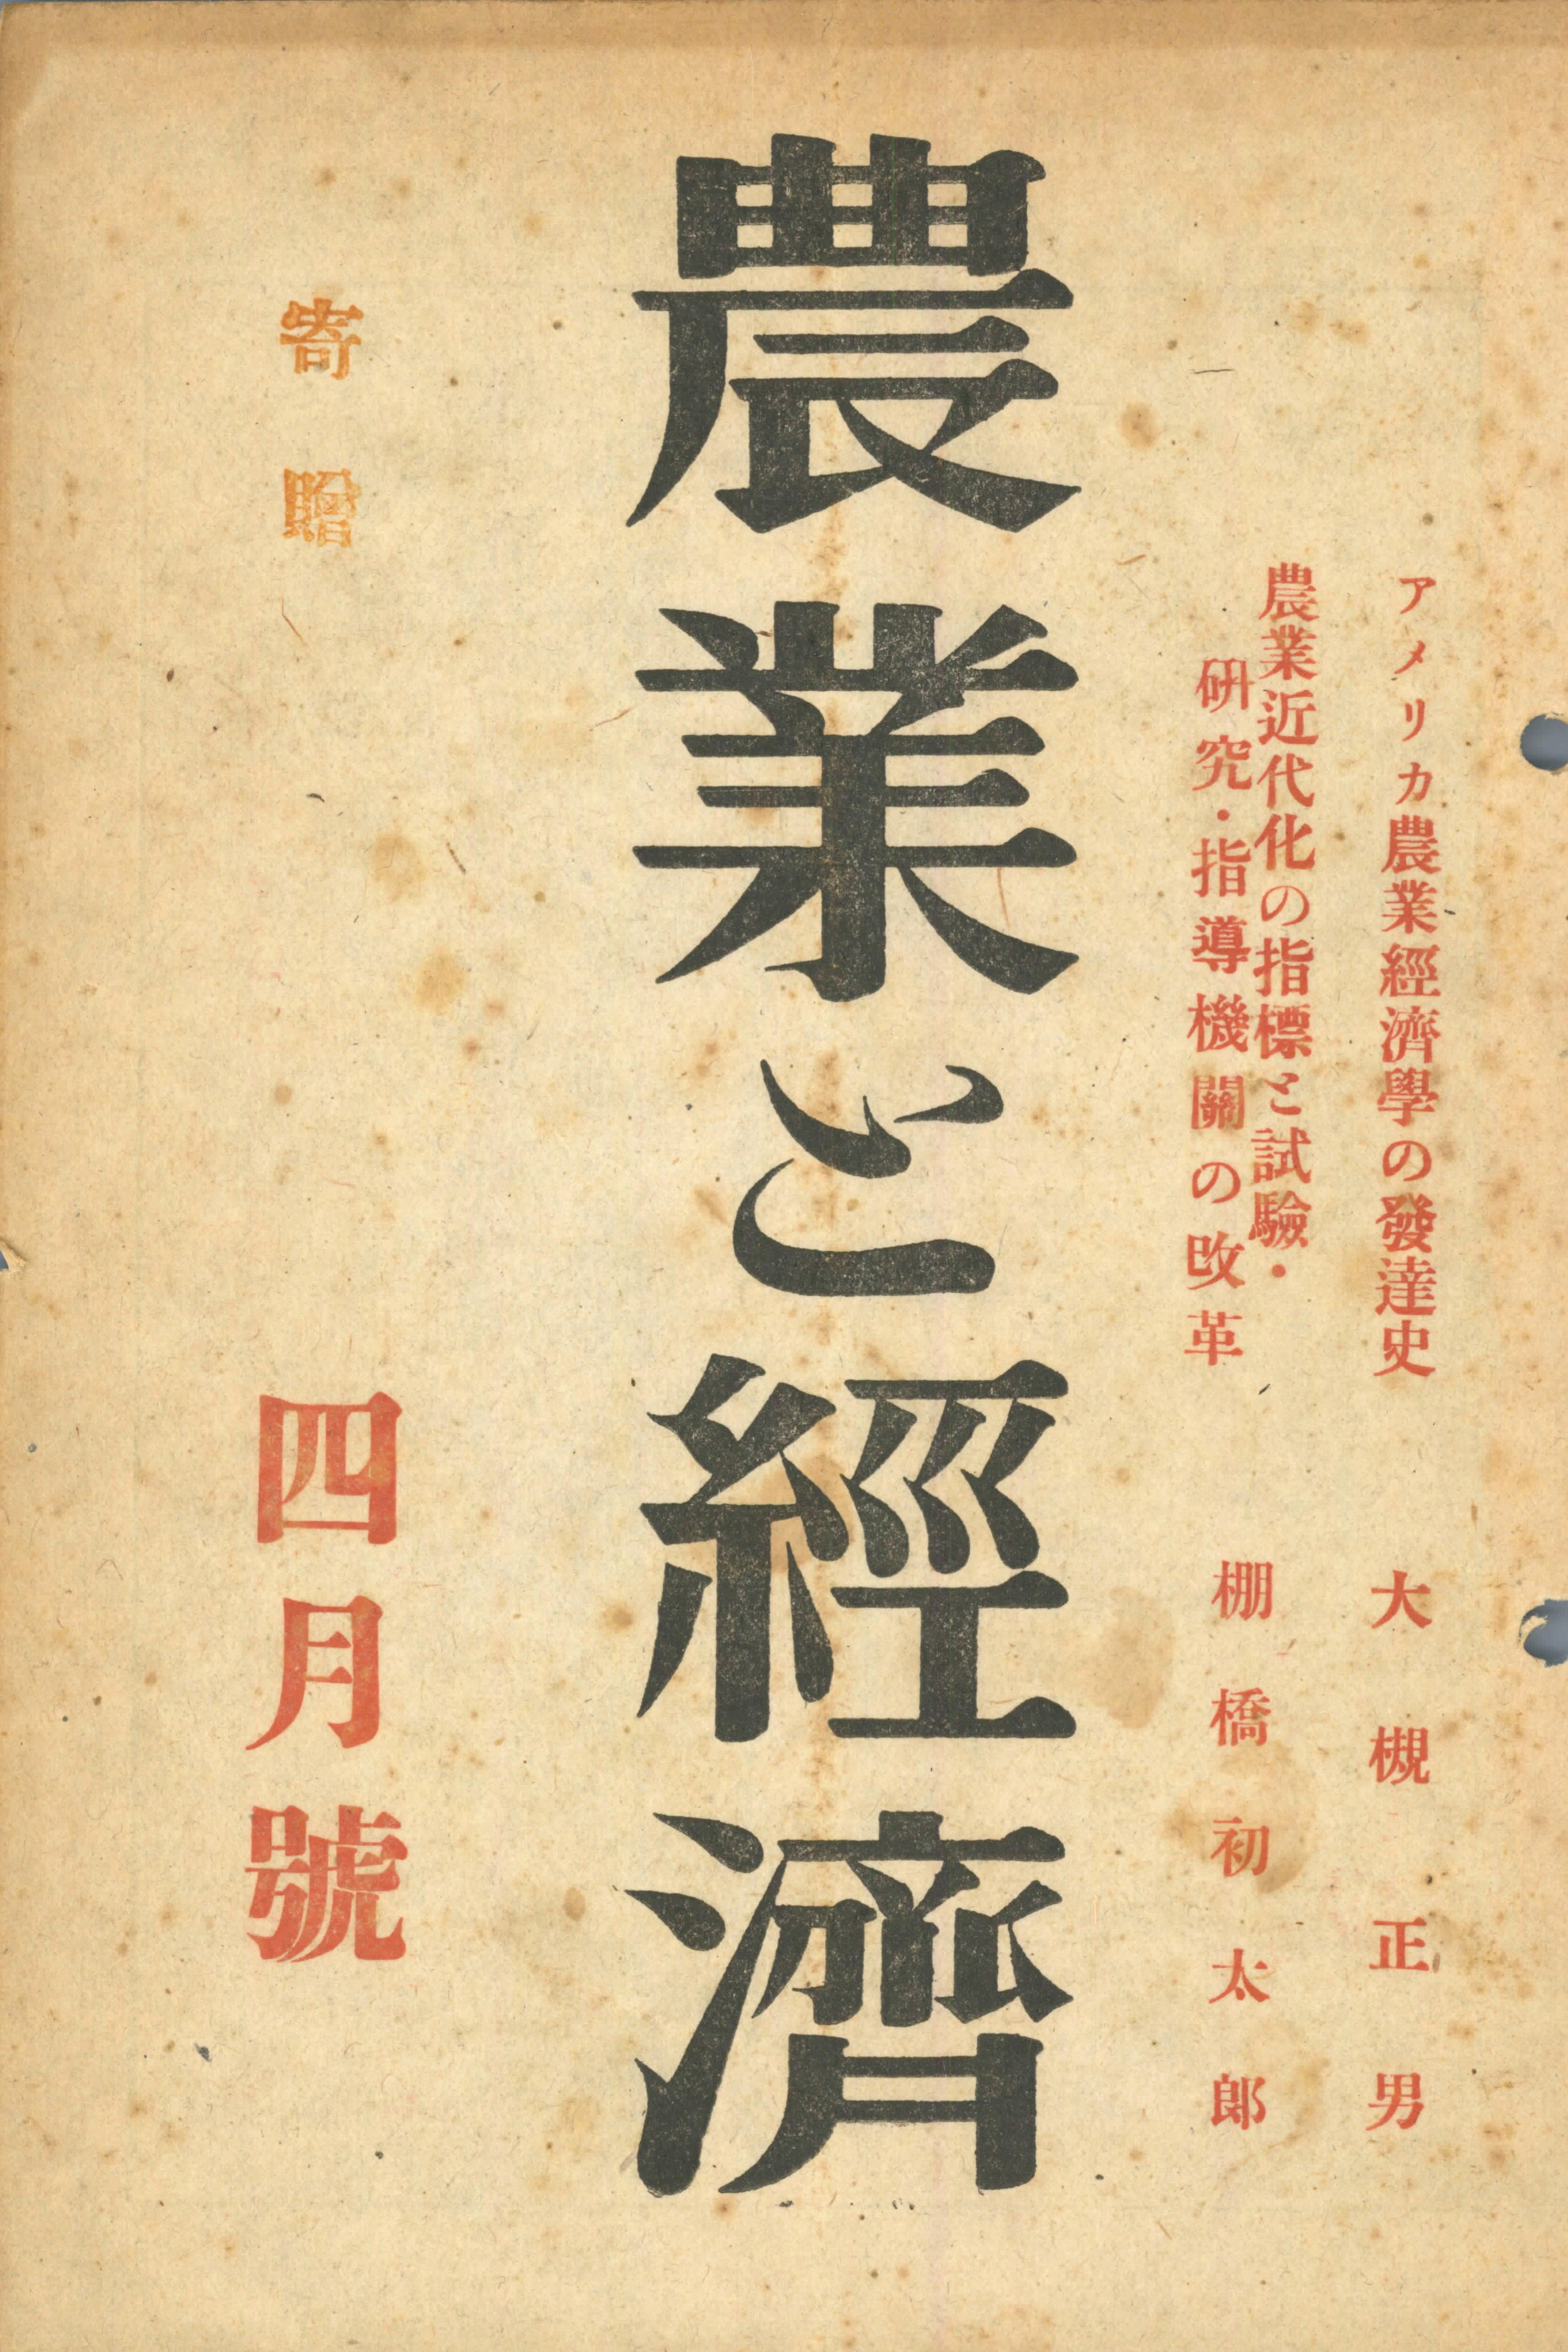 アメリカ農業經濟學の發達史
大槻正男
農業近代化の指標と試驗・
研究・指導機關の改革
棚橋初太郎
農業と經濟
寄贈
四月號